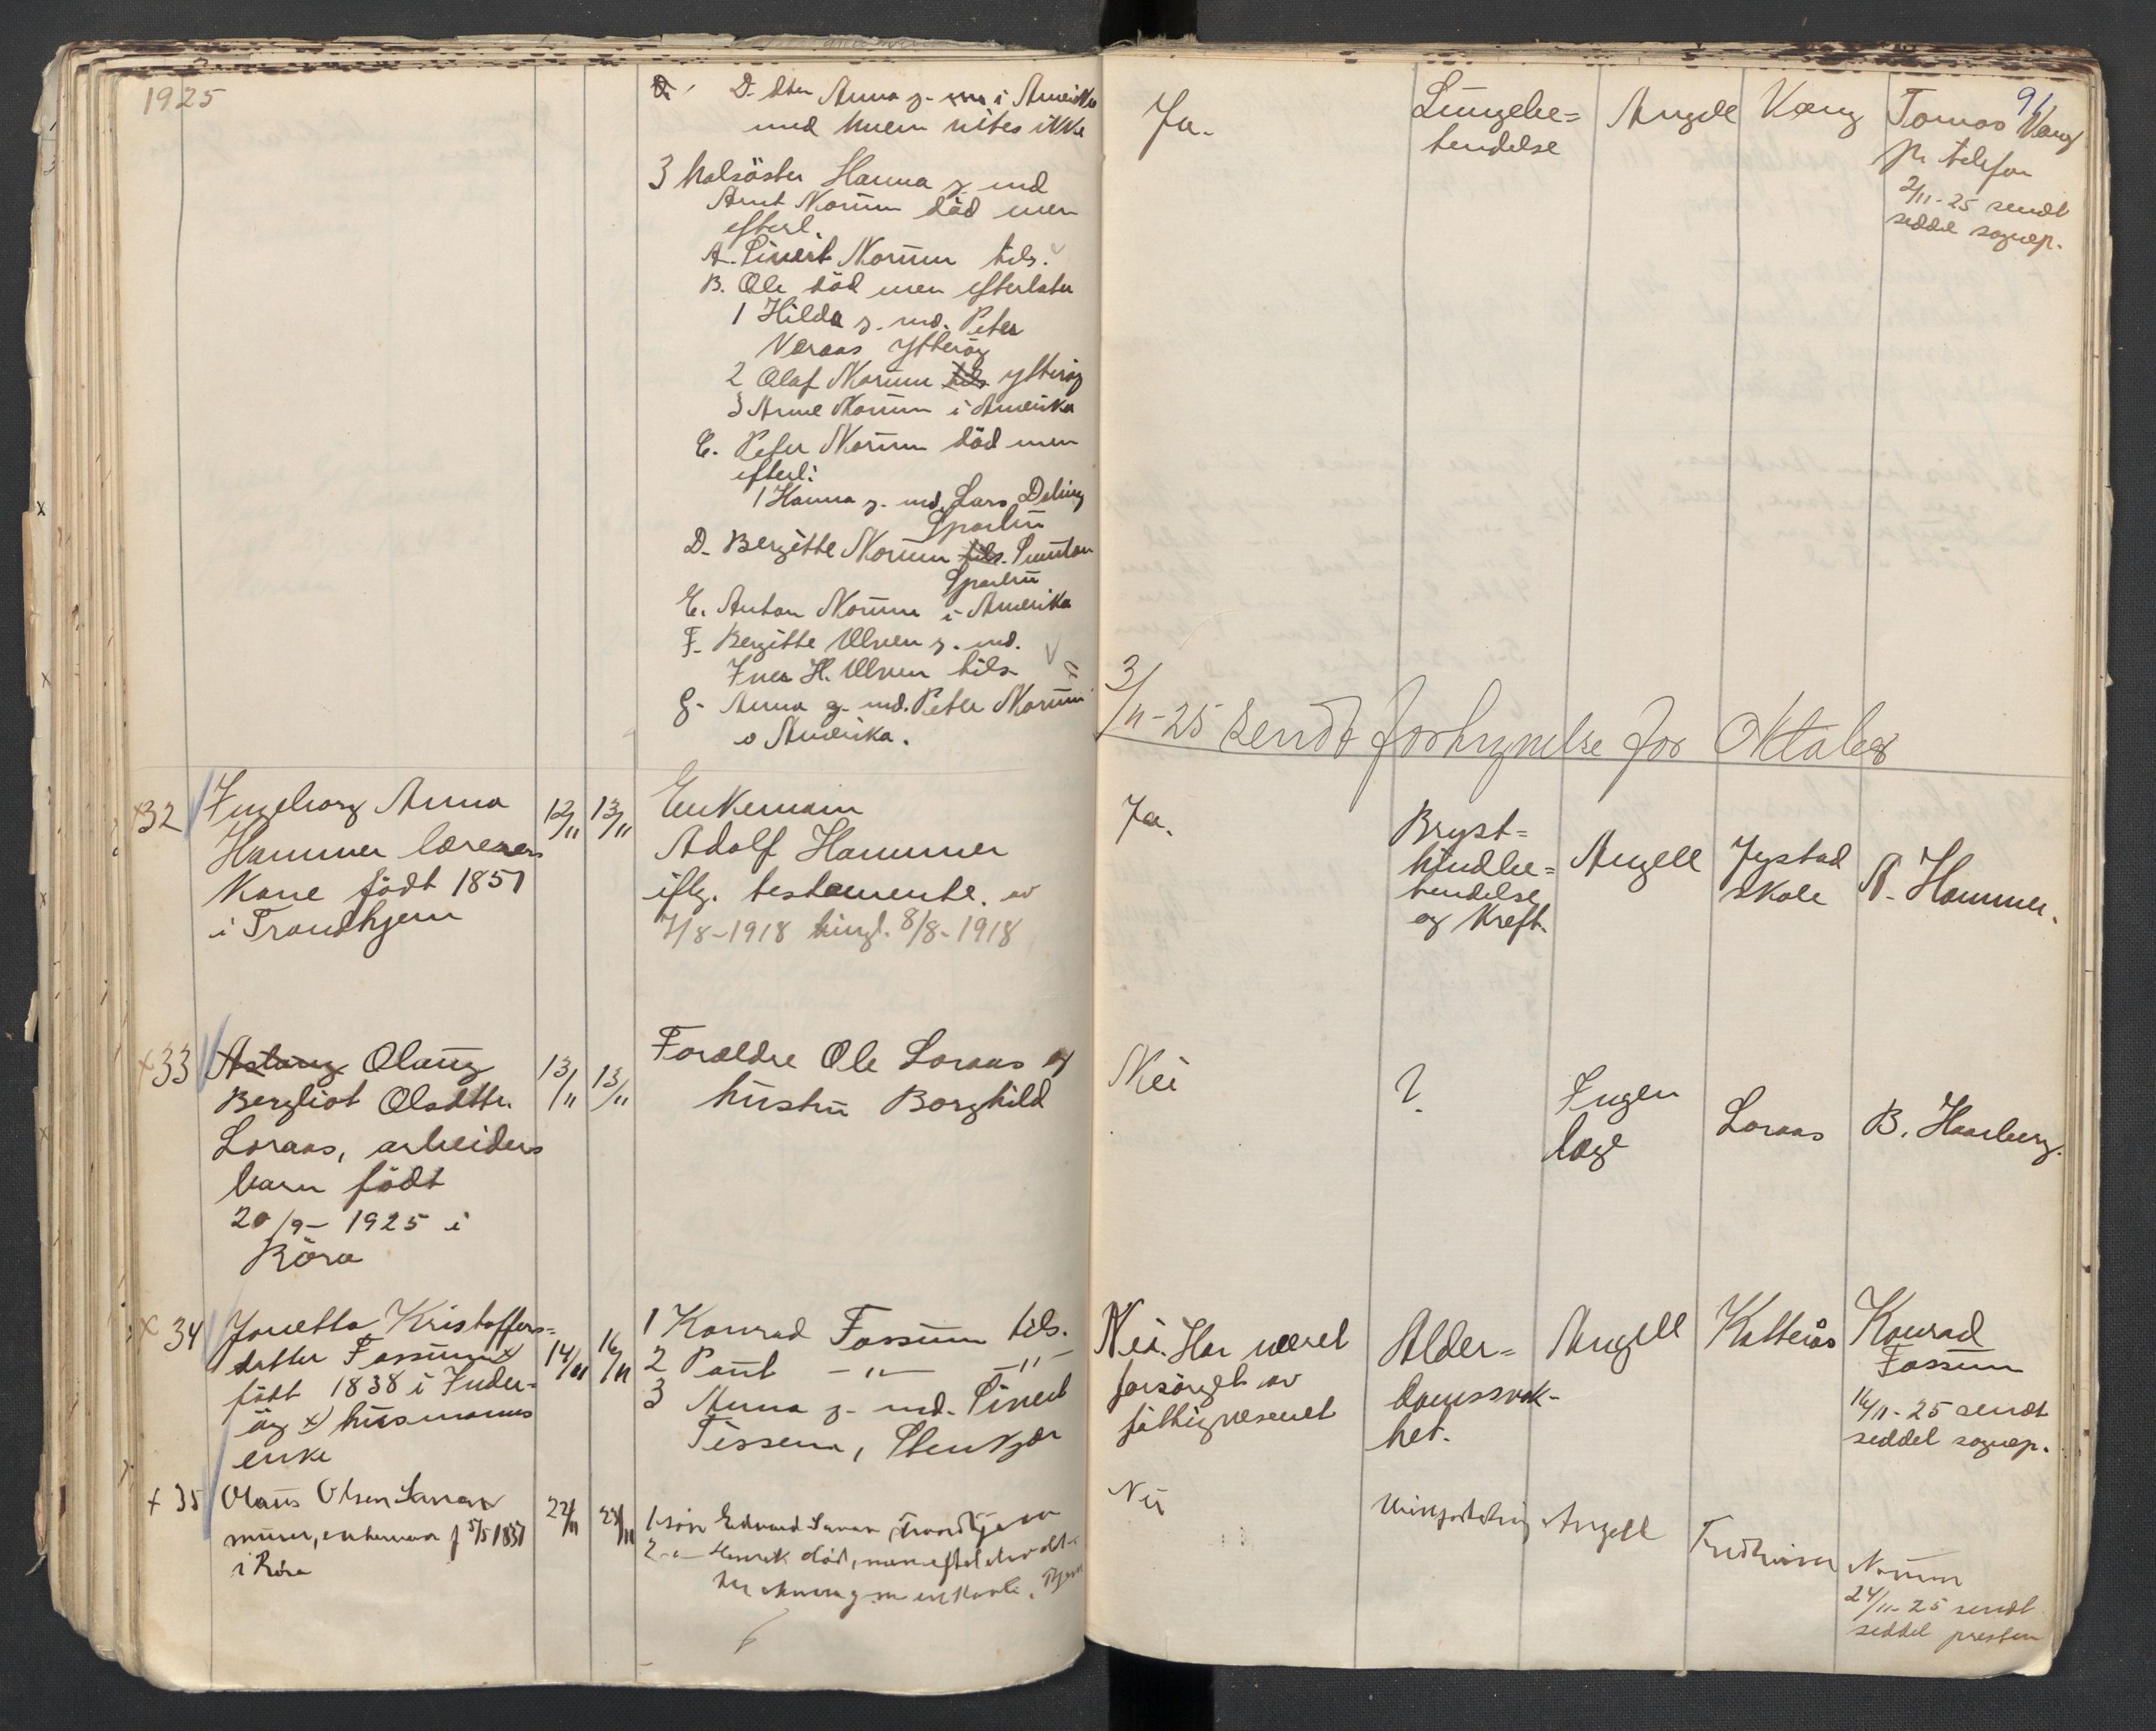 1925
D. dtr Anna g. i Amerika
med hvem vites ikke
3 halsöster Hanna g. med
Arnt Norum död men
efterl.
A. Sivert Norum tils.
B. Ole död men efterlater
1 Hilda g. md. Peter
Varaas Ytteröy
2 Olaf Norum tils. Ytteröy
3 Arne Norum i Amerika
C. Peter Norum död men
efterl:
1 Hanna g. md. Lars Daling
Sparbu
D. Bergitte Norum tils.
Sparbu
E. Anton Norum i Amerika
F. Bergitte Ulven g. md.
Iver H. Ulven tils.
G. Anna g. md. Peter Norum
o Amerika.
Ja.
Lungebe=
tendelse
Angell
Vang
Tomas Vang
pr. telefon
2/11-25 sendt
seddel sognep.
91
3/11-25 sendt for Oktober
x32
Ingeborg Anna
Hammer lærers
kone födt 1851
i Trondhjem
12/11
13/11
Enkemann
Adolf Hammer
iflg. testamente. av
7/8-1918 tingl. 8/8-1918
Ja.
Bryst=
hindbe=
tendelse
og kreft.
Angell
Jystad
skole
A. Hammer.
x33
Aslaug Olaug
Bergliot Olsdtr.
Loraas, arbeiders
barn födt
20/9-1925 i
Röra
13/11
13/11
Foreldre Ole Loraas og
hustru Borghild
Nei
?
Ingen
læge
Loraas
B. Haarberg.
x 34
Jonetta Kristoffers=
datter Fossum x)
födt 1838 i Inder=
öy x) husmanns
enke
14/11
16/11
1 Konrad Fossum tils.
2 Paul -"- -"-
3 Anna g. md. Sivert
Tessem, Stenkjær
Nei. Har været
forsörget av
fattigvesenet
Alder=
domssvak-
het.
Angell
Korsaas
Konrad
Fossum
16/11-25 sendt
seddel sognep.
x 35
Olaus Olsen
murer, enkemann f 5/5 1837
i Röra
22/11
24/11
1 sön Edvard Trondhjem
2 -"- Henrik död, men efterl.
Nei
Angell
Norum
24/11-25 sendt
seddel presten